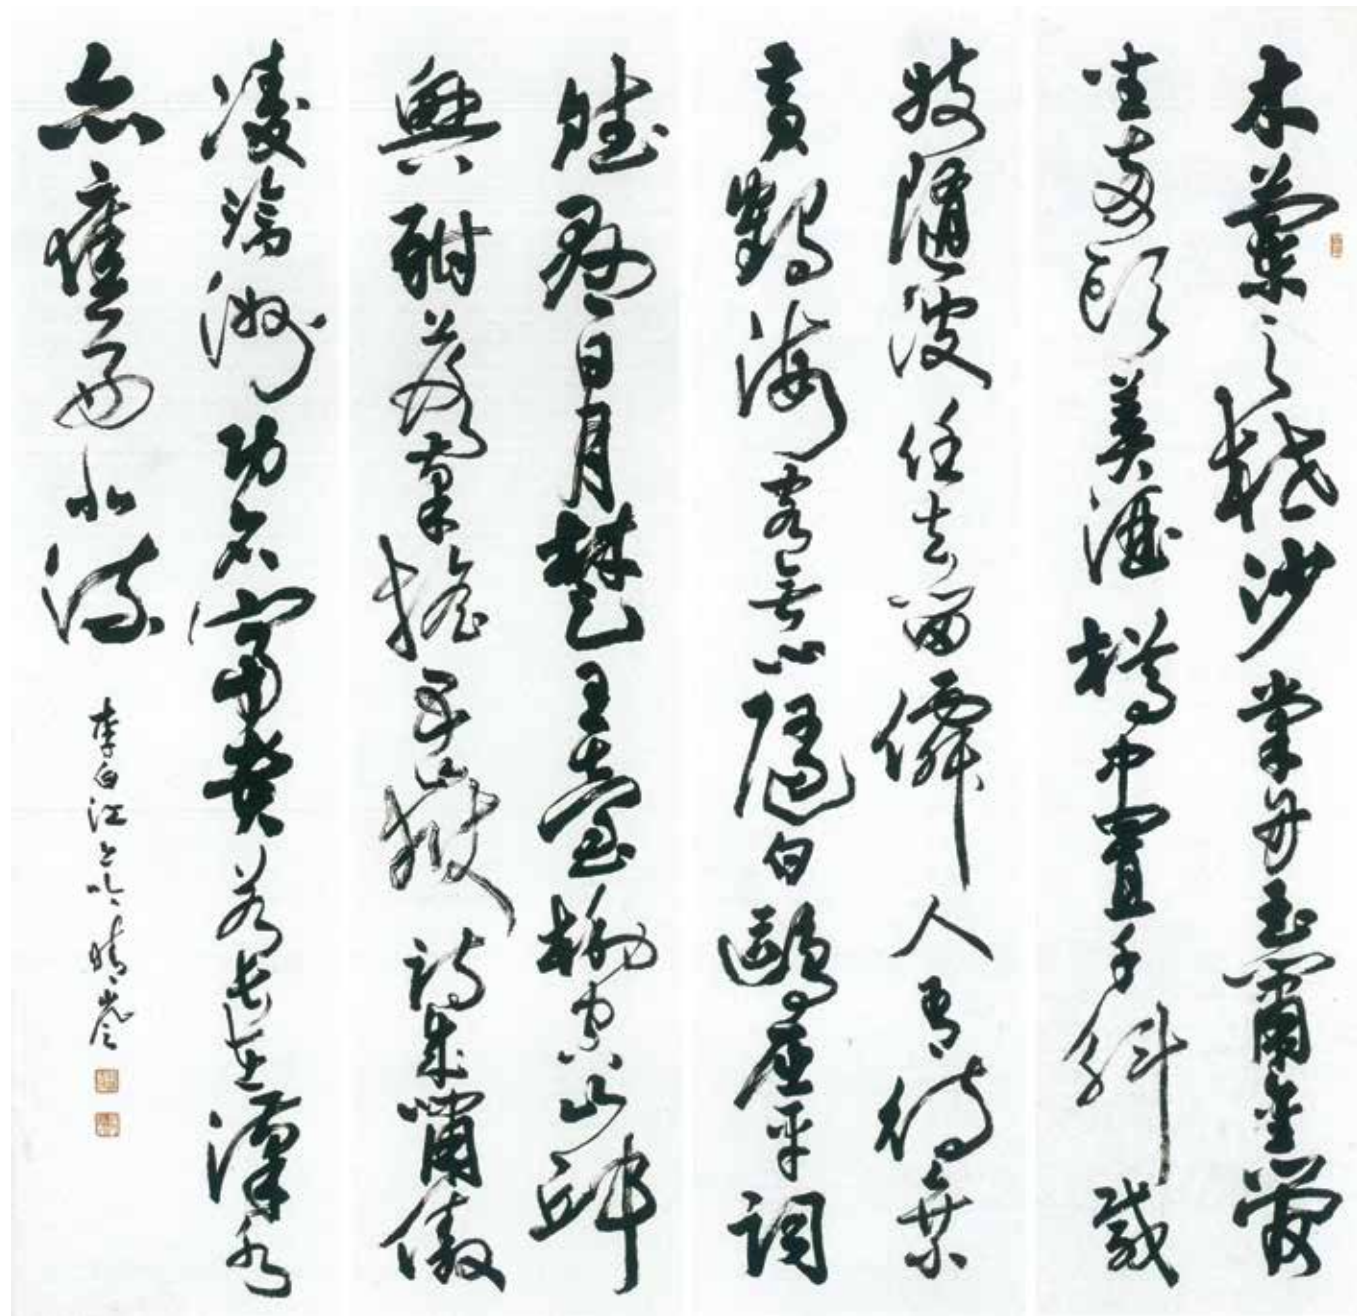 木蘭之枻沙棠舟玉簫金管
坐兩頭美酒樽中置千斛載
妓隨波任去留僊人有待乘
黃鶴海客無心隨白鷗屈平詞
賦懸日月楚王臺榭空山邱
興酣落筆搖五嶽詩成嘯傲
凌滄洲功名富貴若長在漢水
亦應西北流
李白江上吟晴